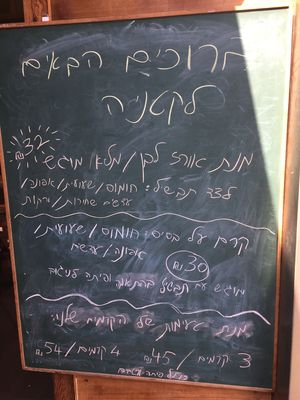 ברוכים הבאים
לקטניה
32 ₪
מנת אורז לבן/מלא מוגש
לצד תבשיל: חומוס/שעועית/אפונה/
עדשים שחורות/ירקות
קרם על בסיס: חומוס/שעועית/
אפונה/עדשים
30 ₪
מוגש עם תבשיל בהתאמה ופיתה לניגוב
מנת טעימות של הקרמים שלנו:
3 קרמים/45 ₪ 4 קרמים/54 ₪